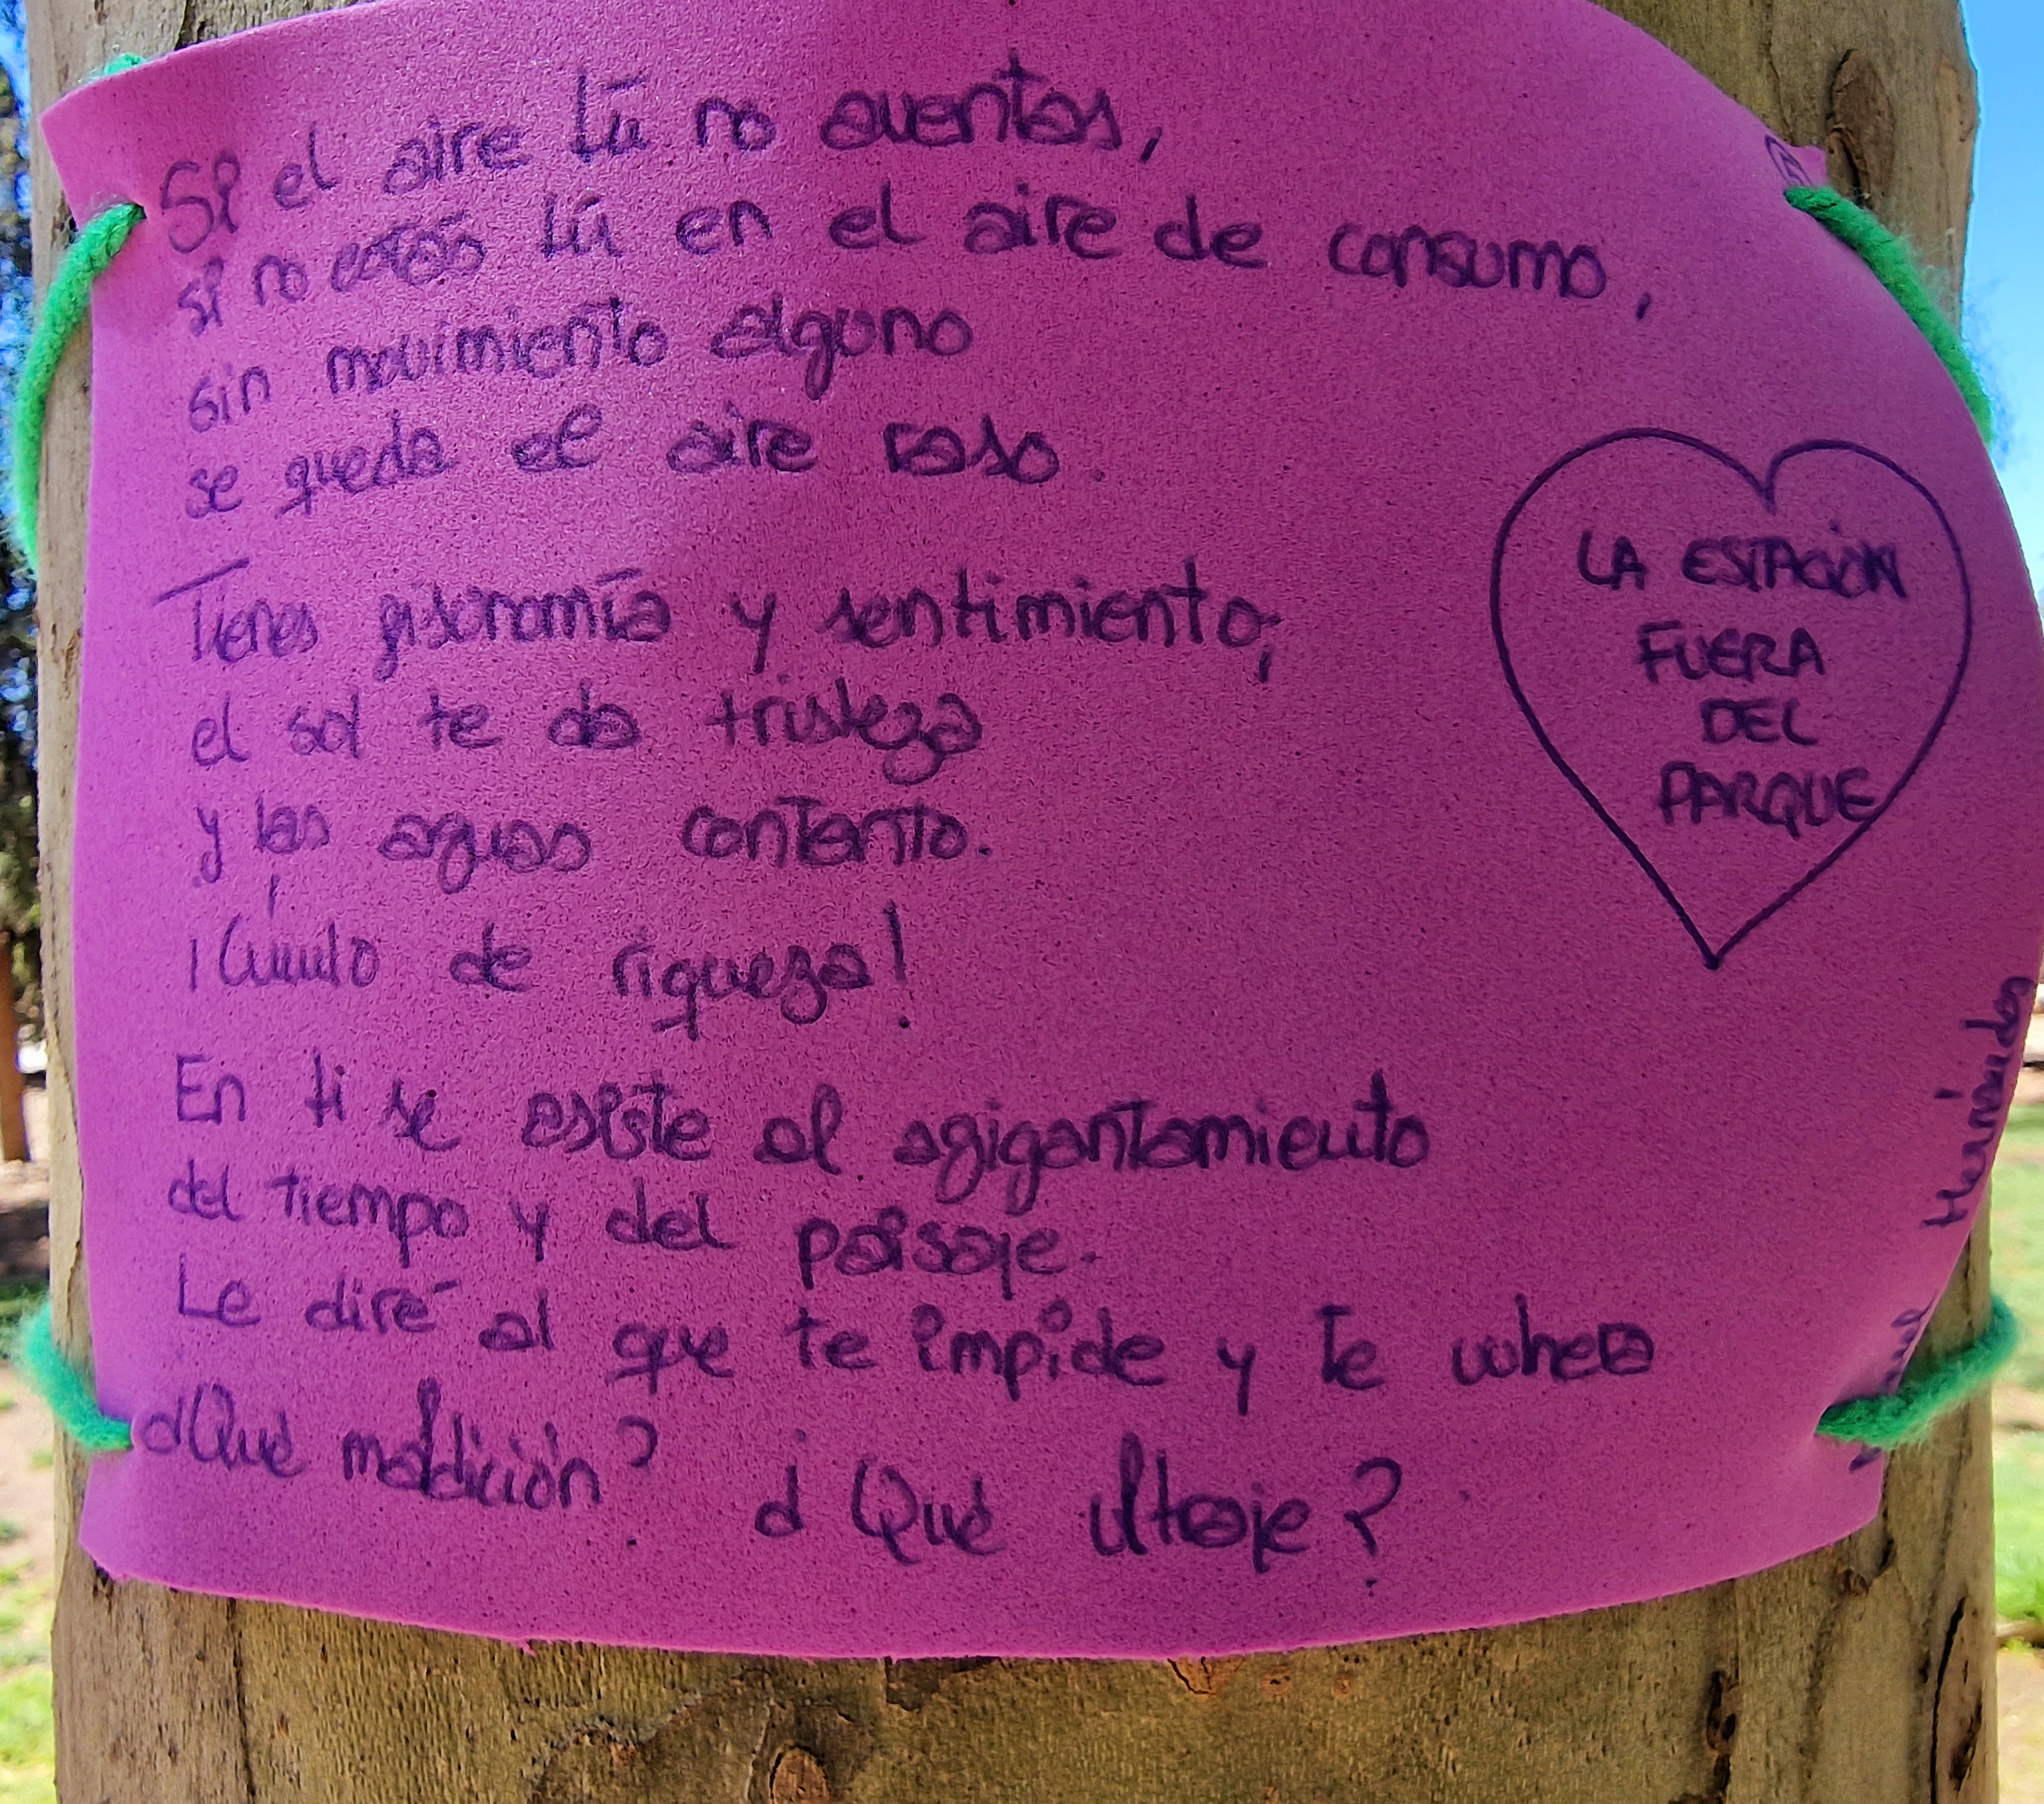 Si el aire tú no aventas,
si no estás tú en el aire de consumo,
sin movimiento alguno
se queda el aire raso.
Tienes fisonomía y sentimiento;
el sol te da tristeza
y las aguas contento.
¡Cúmulo de riqueza!
En ti se asiste al agigantamiento
del tiempo y del paisaje.
Le diré al que te impide y te
¿Qué maldición? ¿Qué ultraje?
LA ESTACIÓN
FUERA
DEL
PARQUE
Hernández